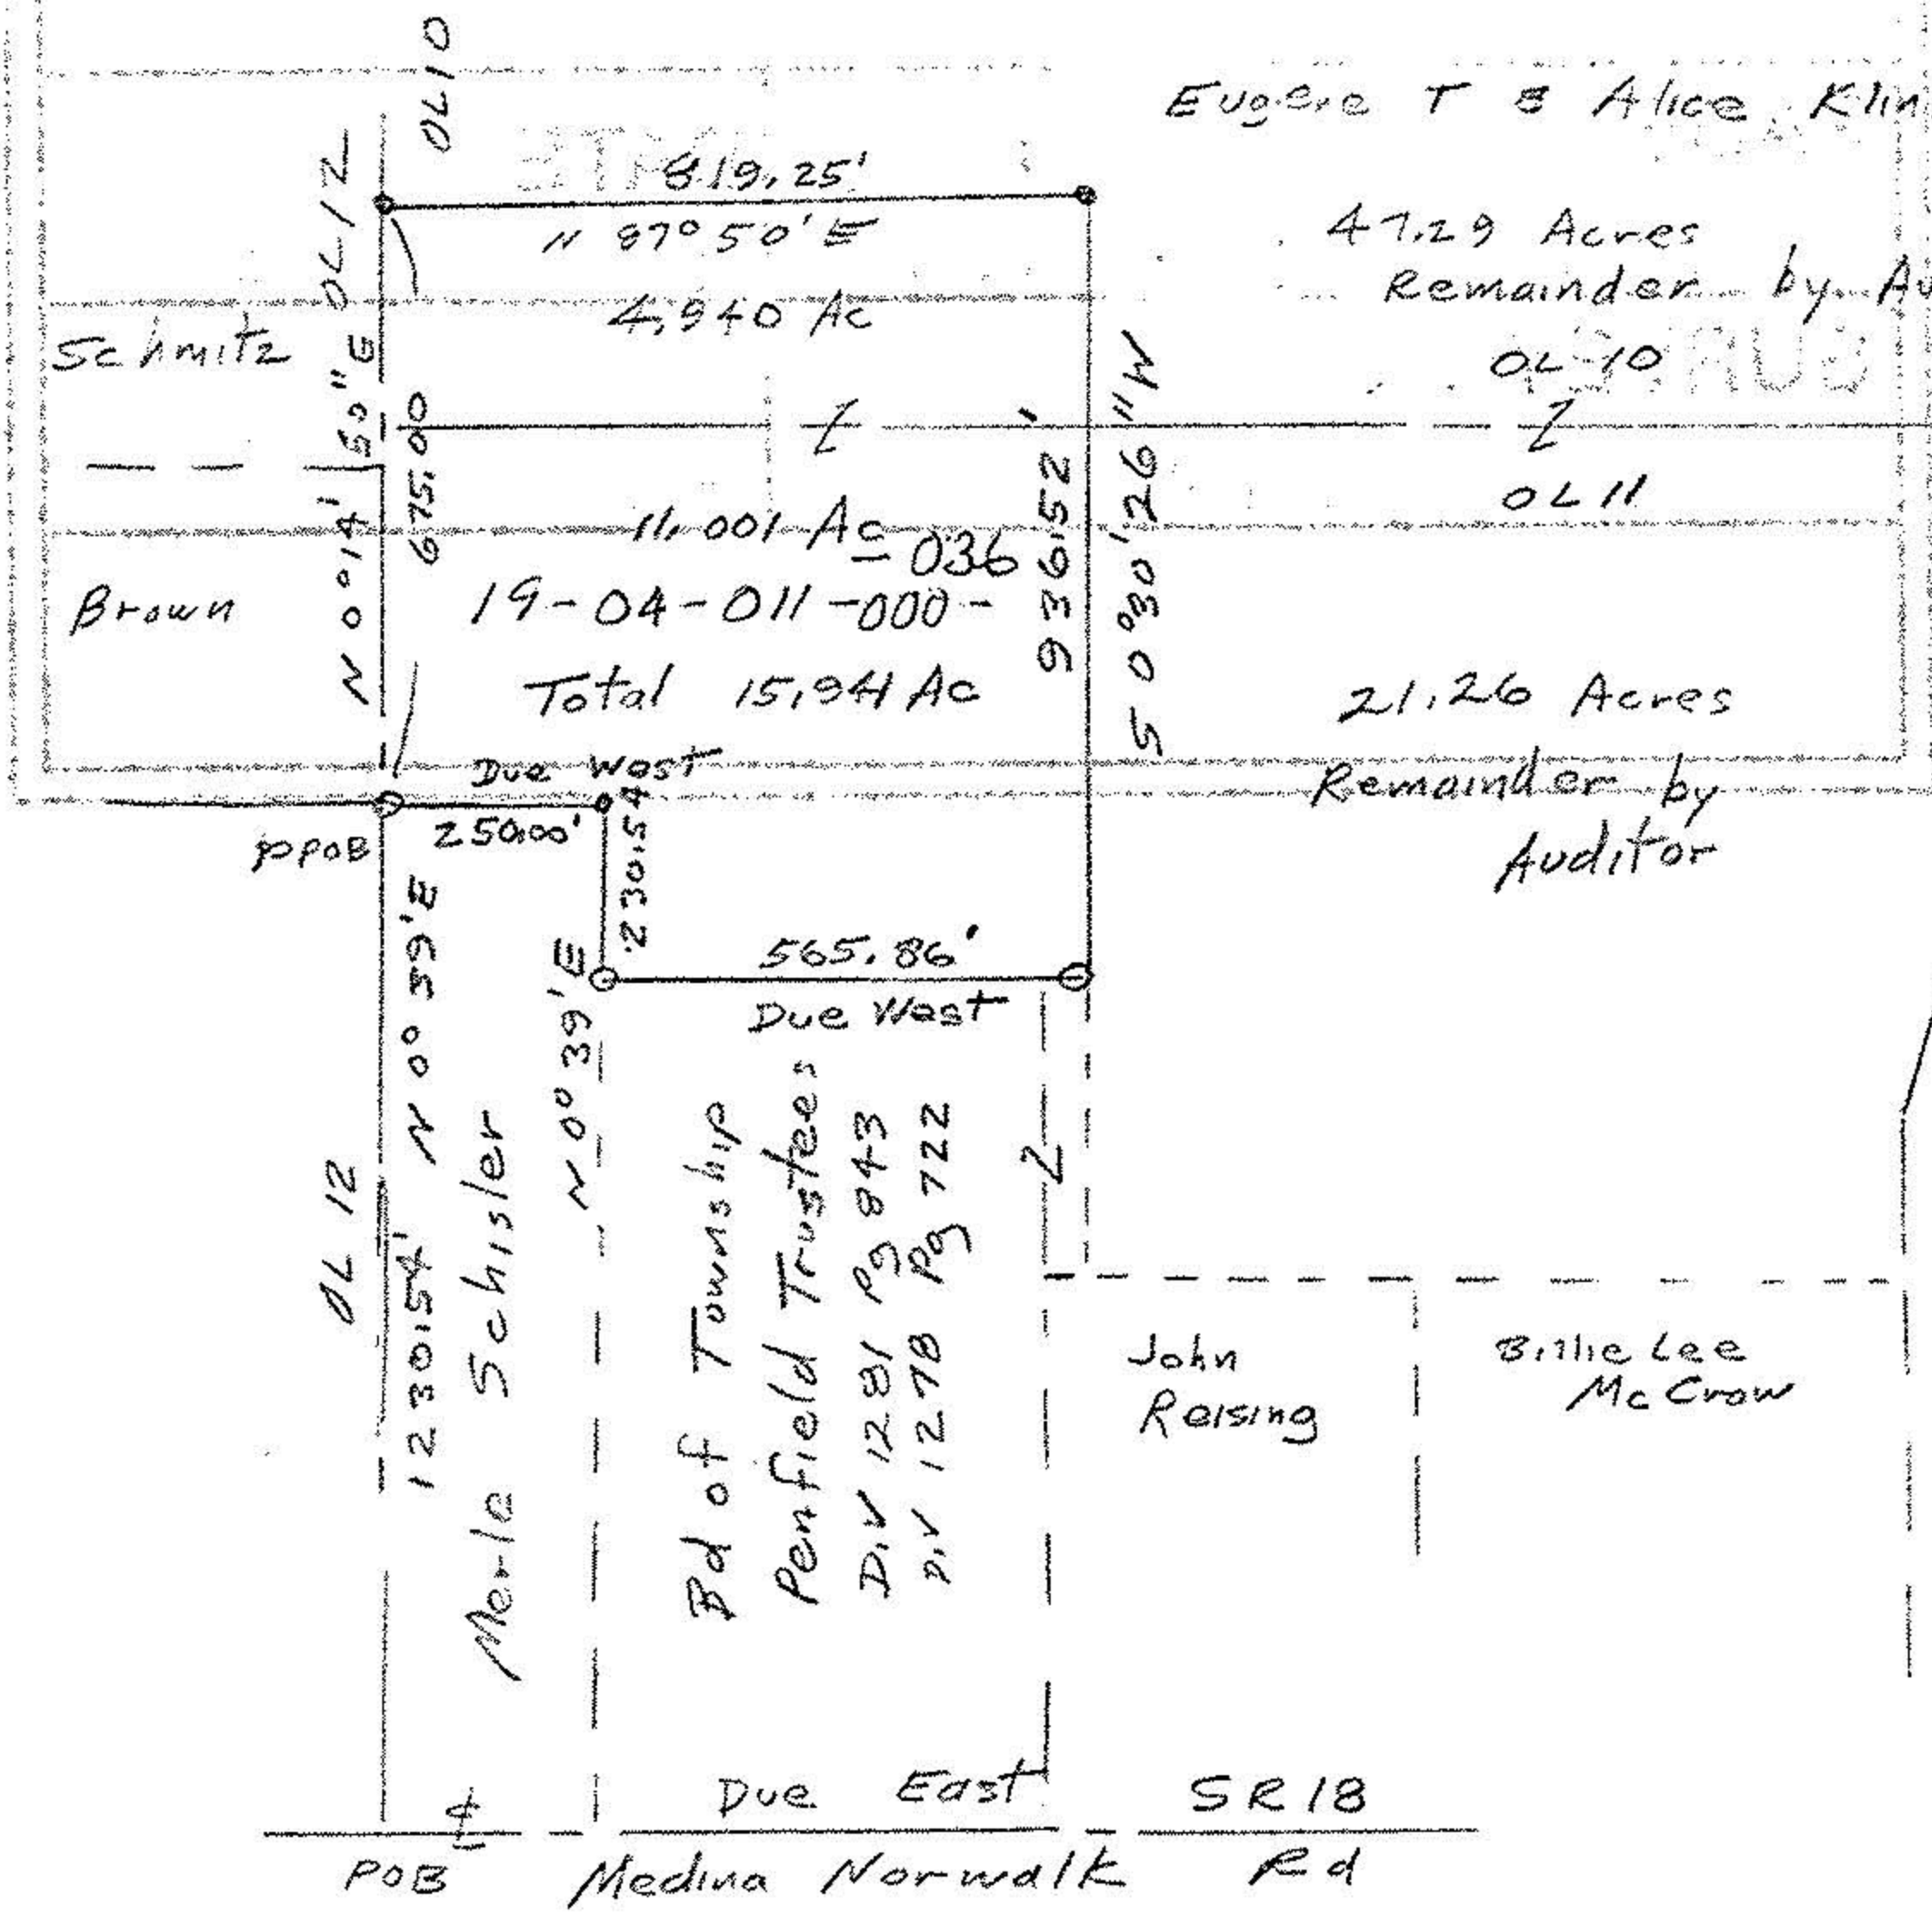 OL 10
Eugene T & Alice Klin
OL 12
819.25'
N 87° 50' E
47.29 Acres
Remainder by Au
4.940 Ac
Schmitz
OL 10
N 0° 14' 50" E
675.00
936.52'
S 0° 30' 26" W
OL 11
11.001 Ac
- 036
19-04-011-000-
Brown
Total 15.941 Ac
21.26 Acres
Remainder by
Auditor
Due West
250.00'
PPOB
230.54
565.86'
Due West
N 0° 39' E
N 0° 39' E
OL 12
1230.54'
Merle Schisler
Bd of Township
Penfield Trustees
D.V 1281 Pg 843
D.V 1278 Pg 722
John
Reising
Billie Lee
McCraw
Due East
SR 18
POB
Medina Norwalk Rd